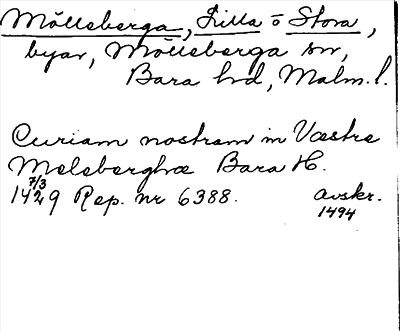 Mölleberga, Lilla o Stora,
byar, Mölleberga sn,
Bara hd, Malm. l.
Curiam nostram in Væstre
Meleberghæ Bara H.
7/3
1429 Rep. nr 6388. avskr.
1494